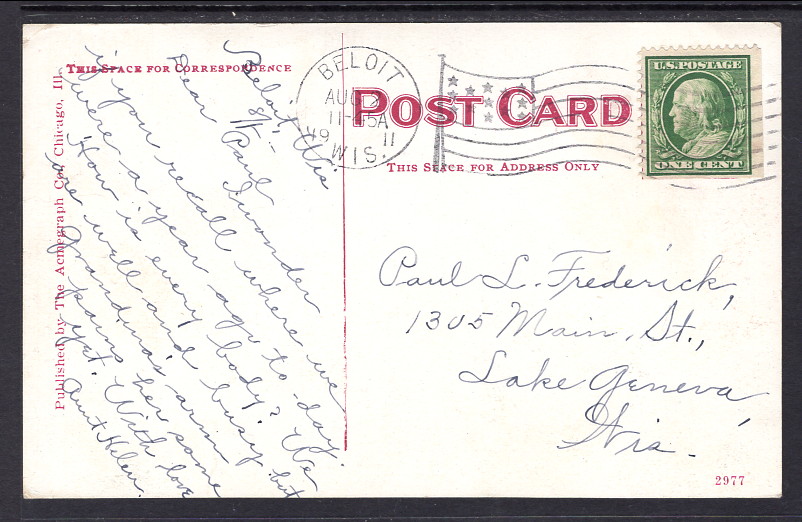 THIS SPACE FOR CORRESPONDENCE
POST CARD
THIS SPACE FOR ADDRESS ONLY
BELOIT
AUG
11-45A
11
WIS.
U.S. POSTAGE
ONE CENT
Beloit, Wis
8/1 -
Dear Paul
I wonder
if you recall where we
were a year ago to-day.
How is every body? We
are well and busy but
Grandma's arm
pains her some
yet. With love
Aunt Helen.
Paul L. Frederick,
1305 Main, St.,
Lake Geneva,
Wis.
Published by The Acmegraph Co., Chicago, Ill.
2977